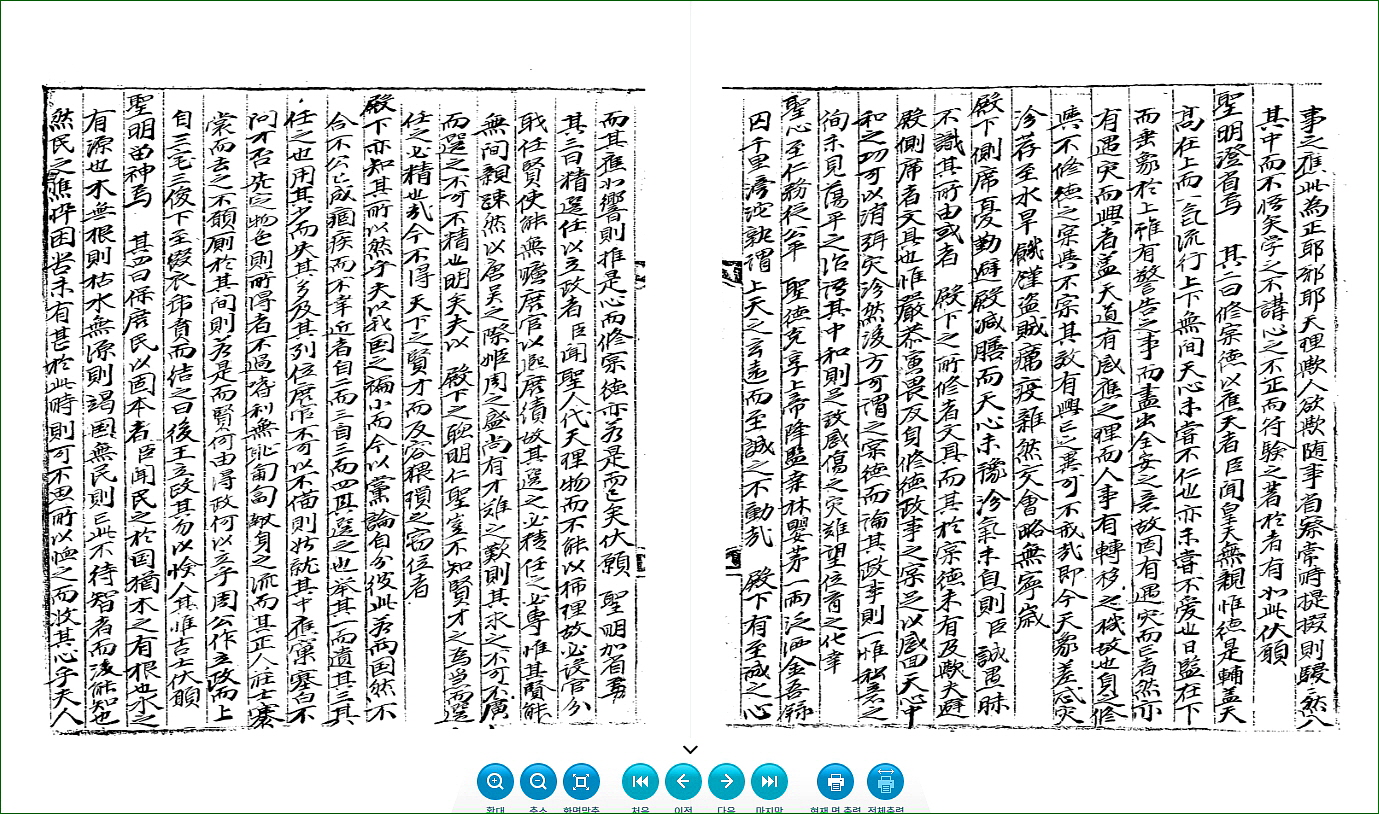 事之應此為正耶邪耶天理歟人欲歟隨事省察常時提掇則驗之然八
其中而不悟矣学之不講心之不正而符驗之著於者有如此伏願
聖明澄省焉 其二曰修宗德以應天者臣聞皇天無親惟德是輔盖天
高在上而一氣流行上下無間天心未嘗不仁也亦未嘗不愛也日監在下
而垂象於上雖有警告之事而盡出全安之意故国有遇灾而亡者然亦
有遇灾而興者盖天道有感應之理而人事有轉移之機故也自修
與不修德之宗與不宗其致有興亡之異可不戒哉即今天象差忒灾
沴荐至水旱饑饉盜賊癘疫雜然交會略無寧歲
殿下側席憂勤避殿減膳而天心未豫沴氣未自則臣誠愚昧
不識其所由或者 殿下之所修者文具而其於宗德未有及歟夫避
殿側席者文具也惟嚴恭寅畏反身修德政事之宗足以感回天心中
和之功可以消弭灾沴然後方可謂之宗德而論其政事則一惟私意之
徇未見蕩平之治語其中和則足致感傷之灾雖望位育之化幸
聖心至仁務從公平 聖德克享上帝降監桑林嬰茅一雨泛洒金吾錄
囚千里滂沱孰謂上天之玄遠而至誠之不動哉 殿下有至誠之心
而其應如響則推是心而修宗德亦若是而已矣伏願 聖明加省焉
其三曰精選任以立政者臣聞聖人代天理物而不能以獨理故必設官分
職任賢使能無曠庶官以熙庶績故其選之必精任之必專惟其賢能
無間親疎然以唐吳之際姬周之盛尚有才難之歎則其求之不可不廣
而選之不可不精也明矣夫以 殿下之聰明仁聖豈不知賢才之為當而選
任之必精也哉今不得天下之賢才而及容猥瑣之窃位者
殿下亦知其所以然乎夫以我国之褊小而今以黨論自分彼此若兩国然不
合不公已成痼疾而不幸近者自二而三自三而四其選之也举其一而遺其三其
任之也用其少而失其多及其列位庶官不可以不備則姑就其中雇窠塞白不
问才否先定物色則所得者不過嗜利無耻匍匐救身之流而其正人庄士褰
裳而去之不願廁於其間則若是而賢何由得政何以立乎周公作立政而上
自三宅三俊下至缀衣虎賁而結之曰後王立政其勿以憸人其惟吉士伏願
聖明留神焉 其四曰保庶民以固本者臣聞民之於国猶木之有根也水之
有源也木無根則枯水無源則竭国無民則亡此不待智者而後能知也
然民之憔悴困苦未有甚於此時則可不思所以恤之而收其心乎夫人
확대
축소
화면맞춤
처음
이전
다음
마지막
현재 면 출력
전체출력